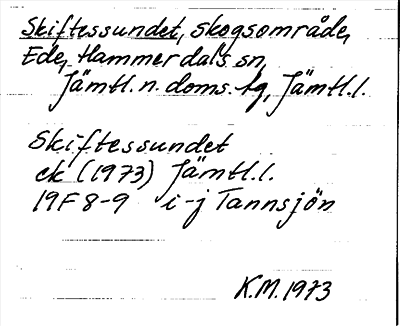 Skiftessundet, skogsområde,
Ede, Hammerdals sn,
Jämtl. n. doms. tg, Jämtl. l.
Skiftessundet
ek (1973) Jämtl. l.
19F 8-9 i-j Tannsjön
K.M. 1973